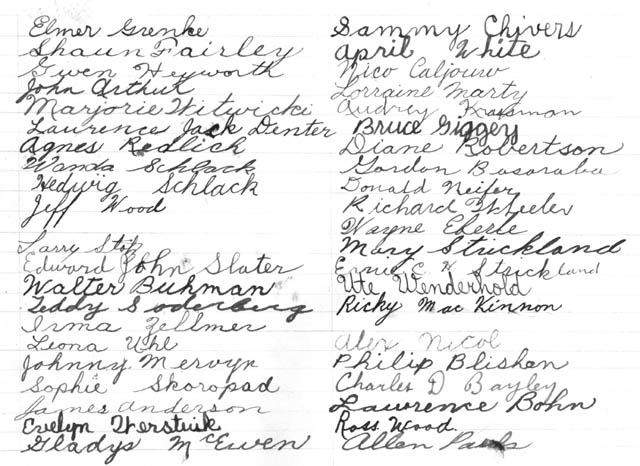 Elmer Grenke
Shaun Fairley
Gwen Heyworth
John Arthur
Marjorie Witwicki
Laurence Jack Denter
Agnes Redlich
Wanda Schlack
Hedwig Schlack
Jeff Wood
Larry
Edward John Slater
Walter Buhman
Teddy Soderberg
Irma Zellmer
Leona Uhl
Johnny Mervyn
Sophie Skoropad
James Anderson
Evelyn Werstuik
Gladys McEwen
Sammy Chivers
April White
Nico Caljouw
Lorraine Marty
Audrey
Bruce Giggery
Diane Robertson
Gordon Basaraba
Donald Neifer
Richard Wheeler
Wayne Eberle
Mary Strickland
Ernie E. H Strickland
Ute Wenderhold
Ricky Mac Kinnon
Alex Nicol
Philip Blishen
Charles D Bayley
Lawrence Bohn
Ross Wood.
Allen